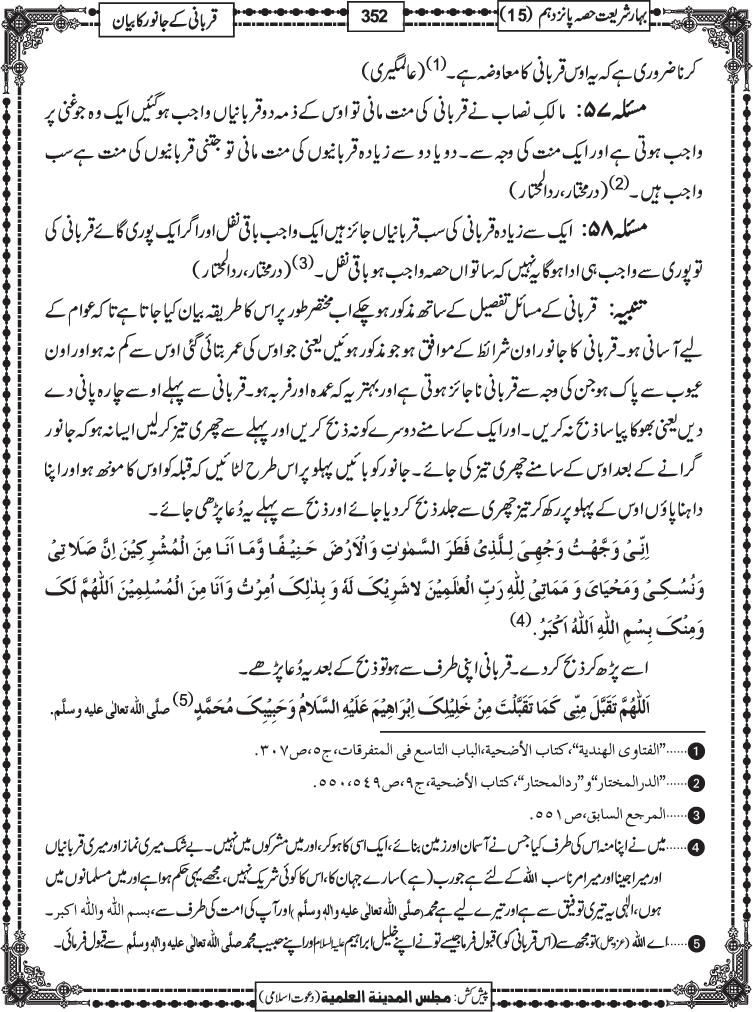 بہارِ شریعت حصہ پانزدہم (15)
352
قربانی کے جانور کا بیان
کرنا ضروری ہے کہ یہ اوس قربانی کا معاوضہ ہے۔(1) (عالمگیری)
مسئلہ ۵۷: مالکِ نصاب نے قربانی کی منت مانی تو اوس کے ذمہ دو قربانیاں واجب ہوگئیں ایک وہ جو غنی پر
واجب ہوتی ہے اور ایک منت کی وجہ سے۔ دو یا دو سے زیادہ قربانیوں کی منت مانی تو جتنی قربانیوں کی منت ہے سب
واجب ہیں۔(2) (درمختار، ردالمحتار)
مسئلہ ۵۸: ایک سے زیادہ قربانی کی سب قربانیاں جائز ہیں ایک واجب باقی نفل اور اگر ایک پوری گائے قربانی کی
تو پوری سے واجب ہی ادا ہوگا یہ نہیں کہ ساتواں حصہ واجب ہو باقی نفل۔(3) (درمختار، ردالمحتار)
تنبیہ: قربانی کے مسائل تفصیل کے ساتھ مذکور ہوچکے اب مختصر طور پر اس کا طریقہ بیان کیا جاتا ہے تاکہ عوام کے
لیے آسانی ہو۔ قربانی کا جانور اون شرائط کے موافق ہو جو مذکور ہوئیں یعنی جو اوس کی عمر بتائی گئی اوس سے کم نہ ہو اور اون
عیوب سے پاک ہو جن کی وجہ سے قربانی ناجائز ہوتی ہے اور بہتر یہ کہ عمدہ اور فربہ ہو۔ قربانی سے پہلے اوسے چارہ پانی دے
دیں یعنی بھوکا پیاسا ذبح نہ کریں۔ اور ایک کے سامنے دوسرے کو نہ ذبح کریں اور پہلے سے چھری تیز کرلیں ایسا نہ ہو کہ جانور
گرانے کے بعد اوس کے سامنے چھری تیز کی جائے۔ جانور کو بائیں پہلو پر اس طرح لٹائیں کہ قبلہ کو اوس کا مونھ ہو اور اپنا
داہنا پاؤں اوس کے پہلو پر رکھ کر تیز چھری سے جلد ذبح کردیا جائے اور ذبح سے پہلے یہ دُعا پڑھی جائے۔
اِنِّیْ وَجَّهْتُ وَجْهِیَ لِلَّذِیْ فَطَرَ السَّمٰوٰتِ وَالْاَرْضَ حَنِیْفًا وَّمَا اَنَا مِنَ الْمُشْرِکِیْنَ اِنَّ صَلَاتِیْ
وَنُسُکِیْ وَمَحْیَایَ وَ مَمَاتِیْ لِلّٰهِ رَبِّ الْعٰلَمِیْنَ لَا شَرِیْکَ لَهٗ وَ بِذٰلِکَ اُمِرْتُ وَاَنَا مِنَ الْمُسْلِمِیْنَ اَللّٰهُمَّ لَکَ
وَمِنْکَ بِسْمِ اللّٰهِ اَللّٰهُ اَکْبَرُ.(4)
اسے پڑھ کر ذبح کردے۔ قربانی اپنی طرف سے ہو تو ذبح کے بعد یہ دُعا پڑھے۔
اَللّٰهُمَّ تَقَبَّلْ مِنِّی کَمَا تَقَبَّلْتَ مِنْ خَلِیْلِکَ اِبْرَاهِیْمَ عَلَیْهِ السَّلَامُ وَحَبِیْبِکَ مُحَمَّدٍ(5) صلَّی اللّٰہ تعالٰی علیہ وسلَّم.
1......"الفتاوی الهندیة"، کتاب الأضحیة، الباب التاسع فی المتفرقات، ج٥، ص٣٠٧.
2......"الدرالمختار" و"ردالمحتار"، کتاب الأضحیة، ج٩، ص٥٤٩، ٥٥٠.
3......المرجع السابق، ص٥٥١.
4......میں نے اپنا منہ اس کی طرف کیا جس نے آسمان اور زمین بنائے، ایک اسی کا ہوکر، اور میں مشرکوں میں نہیں۔ بے شک میری نماز اور میری قربانیاں
اور میرا جینا اور میرا مرنا سب اللّٰہ کے لئے ہے جو رب (ہے) سارے جہان کا، اس کا کوئی شریک نہیں، مجھے یہی حکم ہوا ہے اور میں مسلمانوں میں
ہوں، الٰہی یہ تیری توفیق سے ہے اور تیرے لیے ہے محمد (صلَّی اللّٰہ تعالٰی علیہ والہٖ وسلَّم) اور آپ کی امت کی طرف سے، بسم اللّٰہ واللّٰہ اکبر۔
5......اے اللّٰہ (عزوجل) تو مجھ سے (اس قربانی کو) قبول فرما جیسے تو نے اپنے خلیل ابراہیم علیہ السلام اور اپنے حبیب محمد صلَّی اللّٰہ تعالٰی علیہ والہٖ وسلَّم سے قبول فرمائی۔
پیش کش: مجلس المدینة العلمیة (دعوتِ اسلامی)